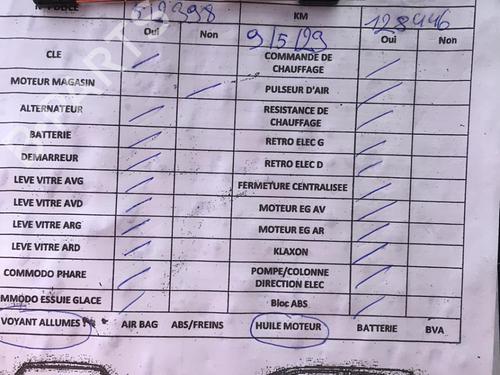 KM 128446
Oui Non 9/5/29 Oui Non
CLE COMMANDE DE CHAUFFAGE
MOTEUR MAGASIN PULSEUR D'AIR
ALTERNATEUR RESISTANCE DE CHAUFFAGE
BATTERIE RETRO ELEC G
DEMARREUR RETRO ELEC D
LEVE VITRE AVG FERMETURE CENTRALISEE
LEVE VITRE AVD MOTEUR EG AV
LEVE VITRE ARG MOTEUR EG AR
LEVE VITRE ARD KLAXON
COMMODO PHARE POMPE/COLONNE DIRECTION ELEC
MMODO ESSUIE GLACE Bloc ABS
VOYANT ALLUMES AIR BAG ABS/FREINS HUILE MOTEUR BATTERIE BVA